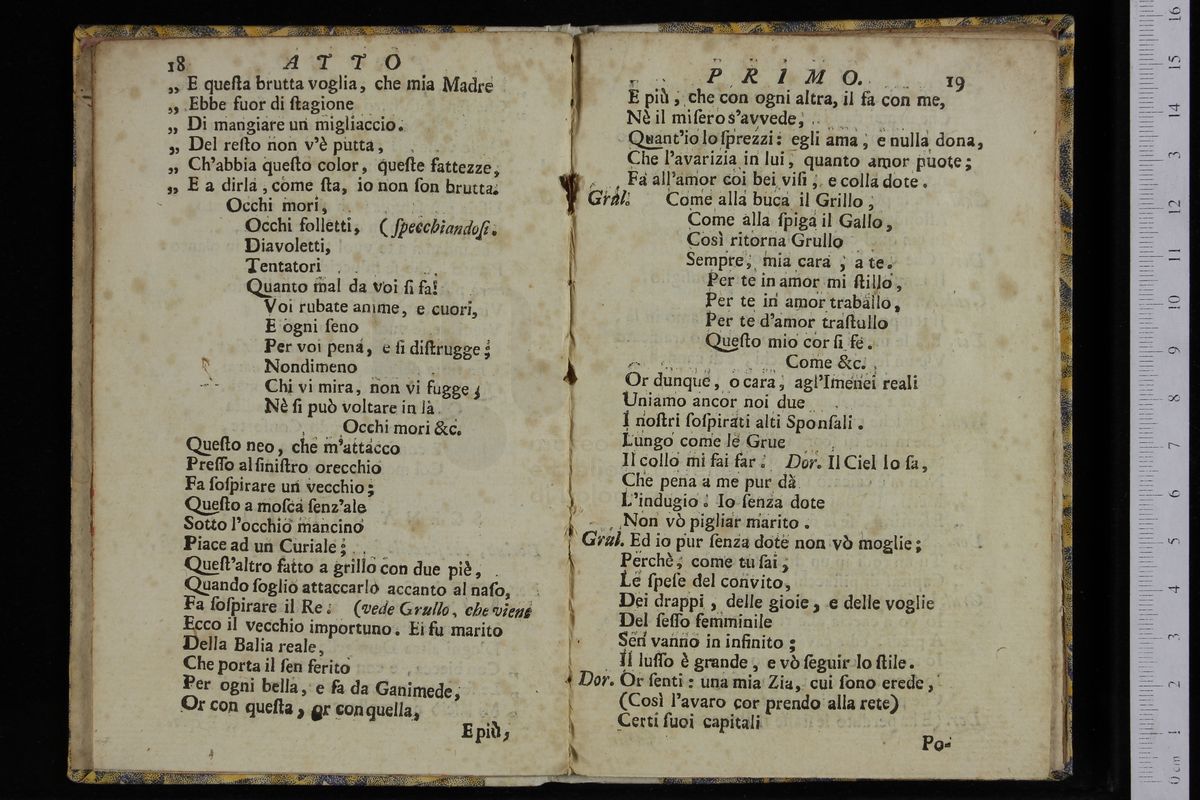 18 ATTO
„ E queſta brutta voglia, che mia Madre
„ Ebbe fuor di ſtagione
„ Di mangiare un migliaccio.
„ Del reſto non v'è putta,
„ Ch'abbia queſto color, queſte fattezze,
„ E a dirla, come ſta, io non ſon brutta.
Occhi mori,
Occhi folletti, (ſpecchiandoſi.
Diavoletti,
Tentatori
Quanto mal da voi ſi fa!
Voi rubate anime, e cuori,
E ogni ſeno
Per voi pena, e ſi diſtrugge;
Nondimeno
Chi vi mira, non vi fugge;
Nè ſi può voltare in là
Occhi mori &c.
Queſto neo, che m'attacco
Preſſo al ſiniſtro orecchio
Fa ſoſpirare un vecchio;
Queſto a moſca ſenz'ale
Sotto l'occhio mancino
Piace ad un Curiale;
Queſt'altro fatto a grillo con due piè,
Quando ſoglio attaccarlo accanto al naſo,
Fa ſoſpirare il Re. (vede Grullo, che viene
Ecco il vecchio importuno. Ei fu marito
Della Balia reale,
Che porta il ſen ferito
Per ogni bella, e fa da Ganimede,
Or con queſta, or con quella,
E più,
PRIMO. 19
E più, che con ogni altra, il fa con me,
Nè il miſero s'avvede,
Quant'io lo ſprezzi: egli ama, e nulla dona,
Che l'avarizia in lui, quanto amor puote;
Fa all'amor coi bei viſi, e colla dote.
Gral. Come alla buca il Grillo,
Come alla ſpiga il Gallo,
Così ritorna Grullo
Sempre, mia cara, a te.
Per te in amor mi ſtillo,
Per te in amor traballo,
Per te d'amor traſtullo
Queſto mio cor ſi fe.
Come &c.
Or dunque, o cara, agl'Imenei reali
Uniamo ancor noi due
I noſtri ſoſpirati alti Sponſali.
Lungo come le Grue
Il collo mi fai far. Dor. Il Ciel lo ſa,
Che pena a me pur dà
L'indugio. Io ſenza dote
Non vò pigliar marito.
Grul. Ed io pur ſenza dote non vò moglie;
Perchè, come tu ſai,
Le ſpeſe del convito,
Dei drappi, delle gioie, e delle voglie
Del ſeſſo femminile
Sen vanno in infinito;
Il luſſo è grande, e vò ſeguir lo ſtile.
Dor. Or ſenti: una mia Zia, cui ſono erede,
(Così l'avaro cor prendo alla rete)
Certi ſuoi capitali
Po-